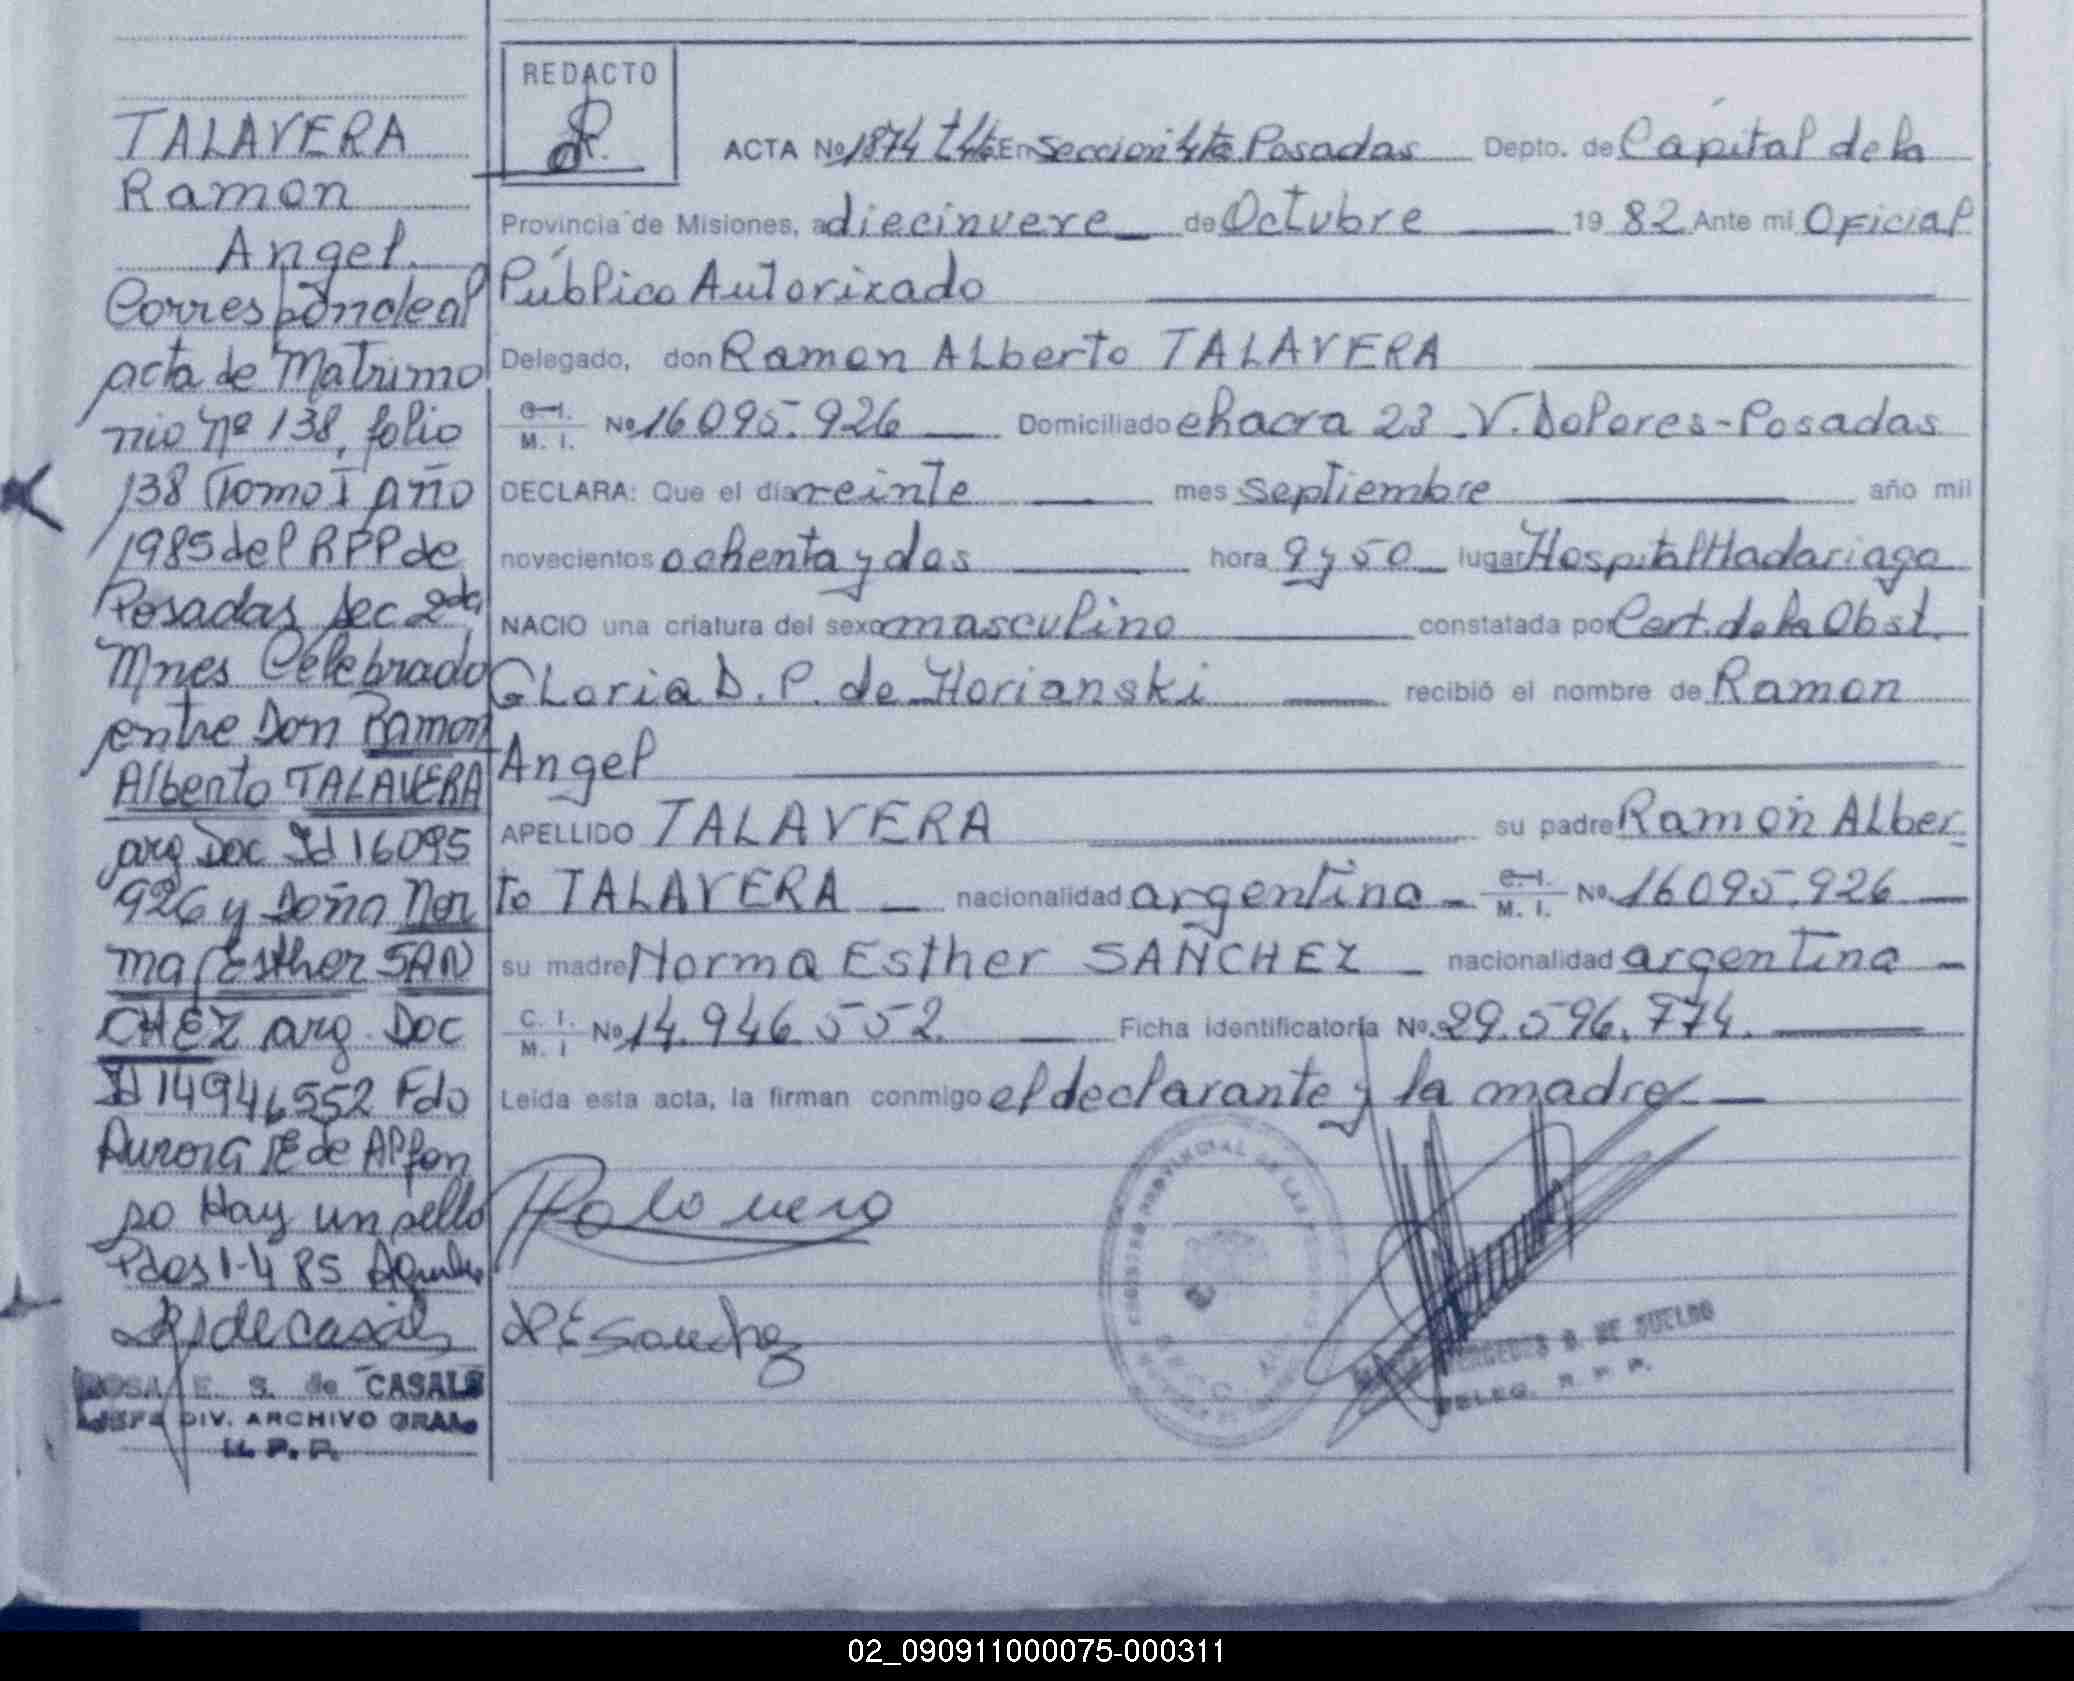 TALAVERA
Ramon
Angel.
Corresponde al
acta de Matrimo
nio nº 138, folio
138 Tomo I año
1985 del RPP de
Posadas Sec 2da
Mnes Celebrado
entre Don Ramon
Alberto TALAVERA
arg Doc Id 16095
926 y Doña Nor
ma Esther SAN
CHEZ arg. Doc
Id 14946552 Fdo
Aurora E de Alfon
so Hay un sello
Pdas 1-4 85
R S de Casals
ROSA E. S. de CASALS
JEFE DIV. ARCHIVO GRAL.
R. P. P.
REDACTO
ACTA Nº 1874 T4to En Seccion 4ta Posadas Depto. de Capital de la
Provincia de Misiones, a diecinueve de Octubre 19 82 Ante mi Oficial
Público Autorizado
Delegado, don Ramon ALberto TALAVERA
C. I. M. I. Nº 16095.926 Domiciliado chacra 23 V. Dolores-Posadas
DECLARA: Que el día veinte mes septiembre año mil
novecientos ochenta y dos hora 9 y 50 lugar Hospital Madariaga
NACIO una criatura del sexo masculino constatada por Cert. de la Obst.
GLoria D. P. de Horianski recibió el nombre de Ramon
Angel
APELLIDO TALAVERA su padre Ramón ALber
to TALAVERA nacionalidad argentina C. I. M. I. Nº 16095.926
su madre Norma Esther SANCHEZ nacionalidad argentina
C. I. M. I Nº 14.946.552. Ficha identificatoria Nº 29.596.774.
Leída esta acta, la firman conmigo el declarante y la madre
REGISTRO PROVINCIAL DE LAS PERSONAS
N E Sanchez
MERCEDES B. DE SUELDO
DELEG. R. P. P.
02_090911000075-000311